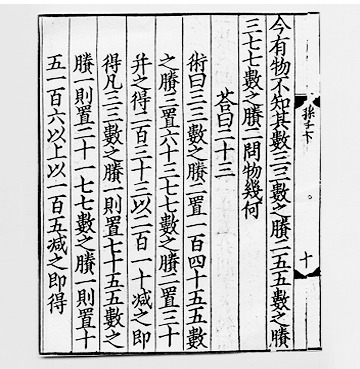 孫子下
十
今有物不知其數三三數之賸二五五數之賸
三七七數之賸二問物幾何
荅曰二十三
術曰三三數之賸二置一百四十五五數
之賸三置六十三七七數之賸二置三十
并之得二百三十三以二百一十減之即
得凡三三數之賸一則置七十五五數之
賸一則置二十一七七數之賸一則置十
五一百六以上以一百五減之即得